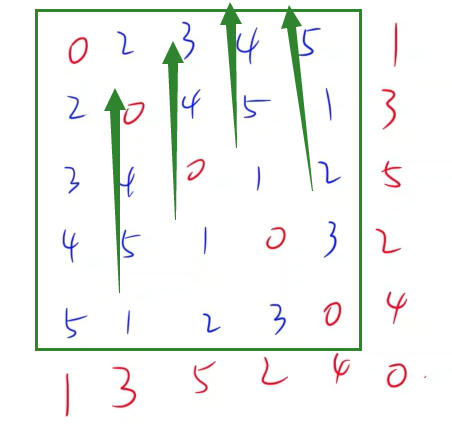 0 2 3 4 5 1
2 0 4 5 1 3
3 4 0 1 2 5
4 5 1 0 3 2
5 1 2 3 0 4
1 3 5 2 4 0